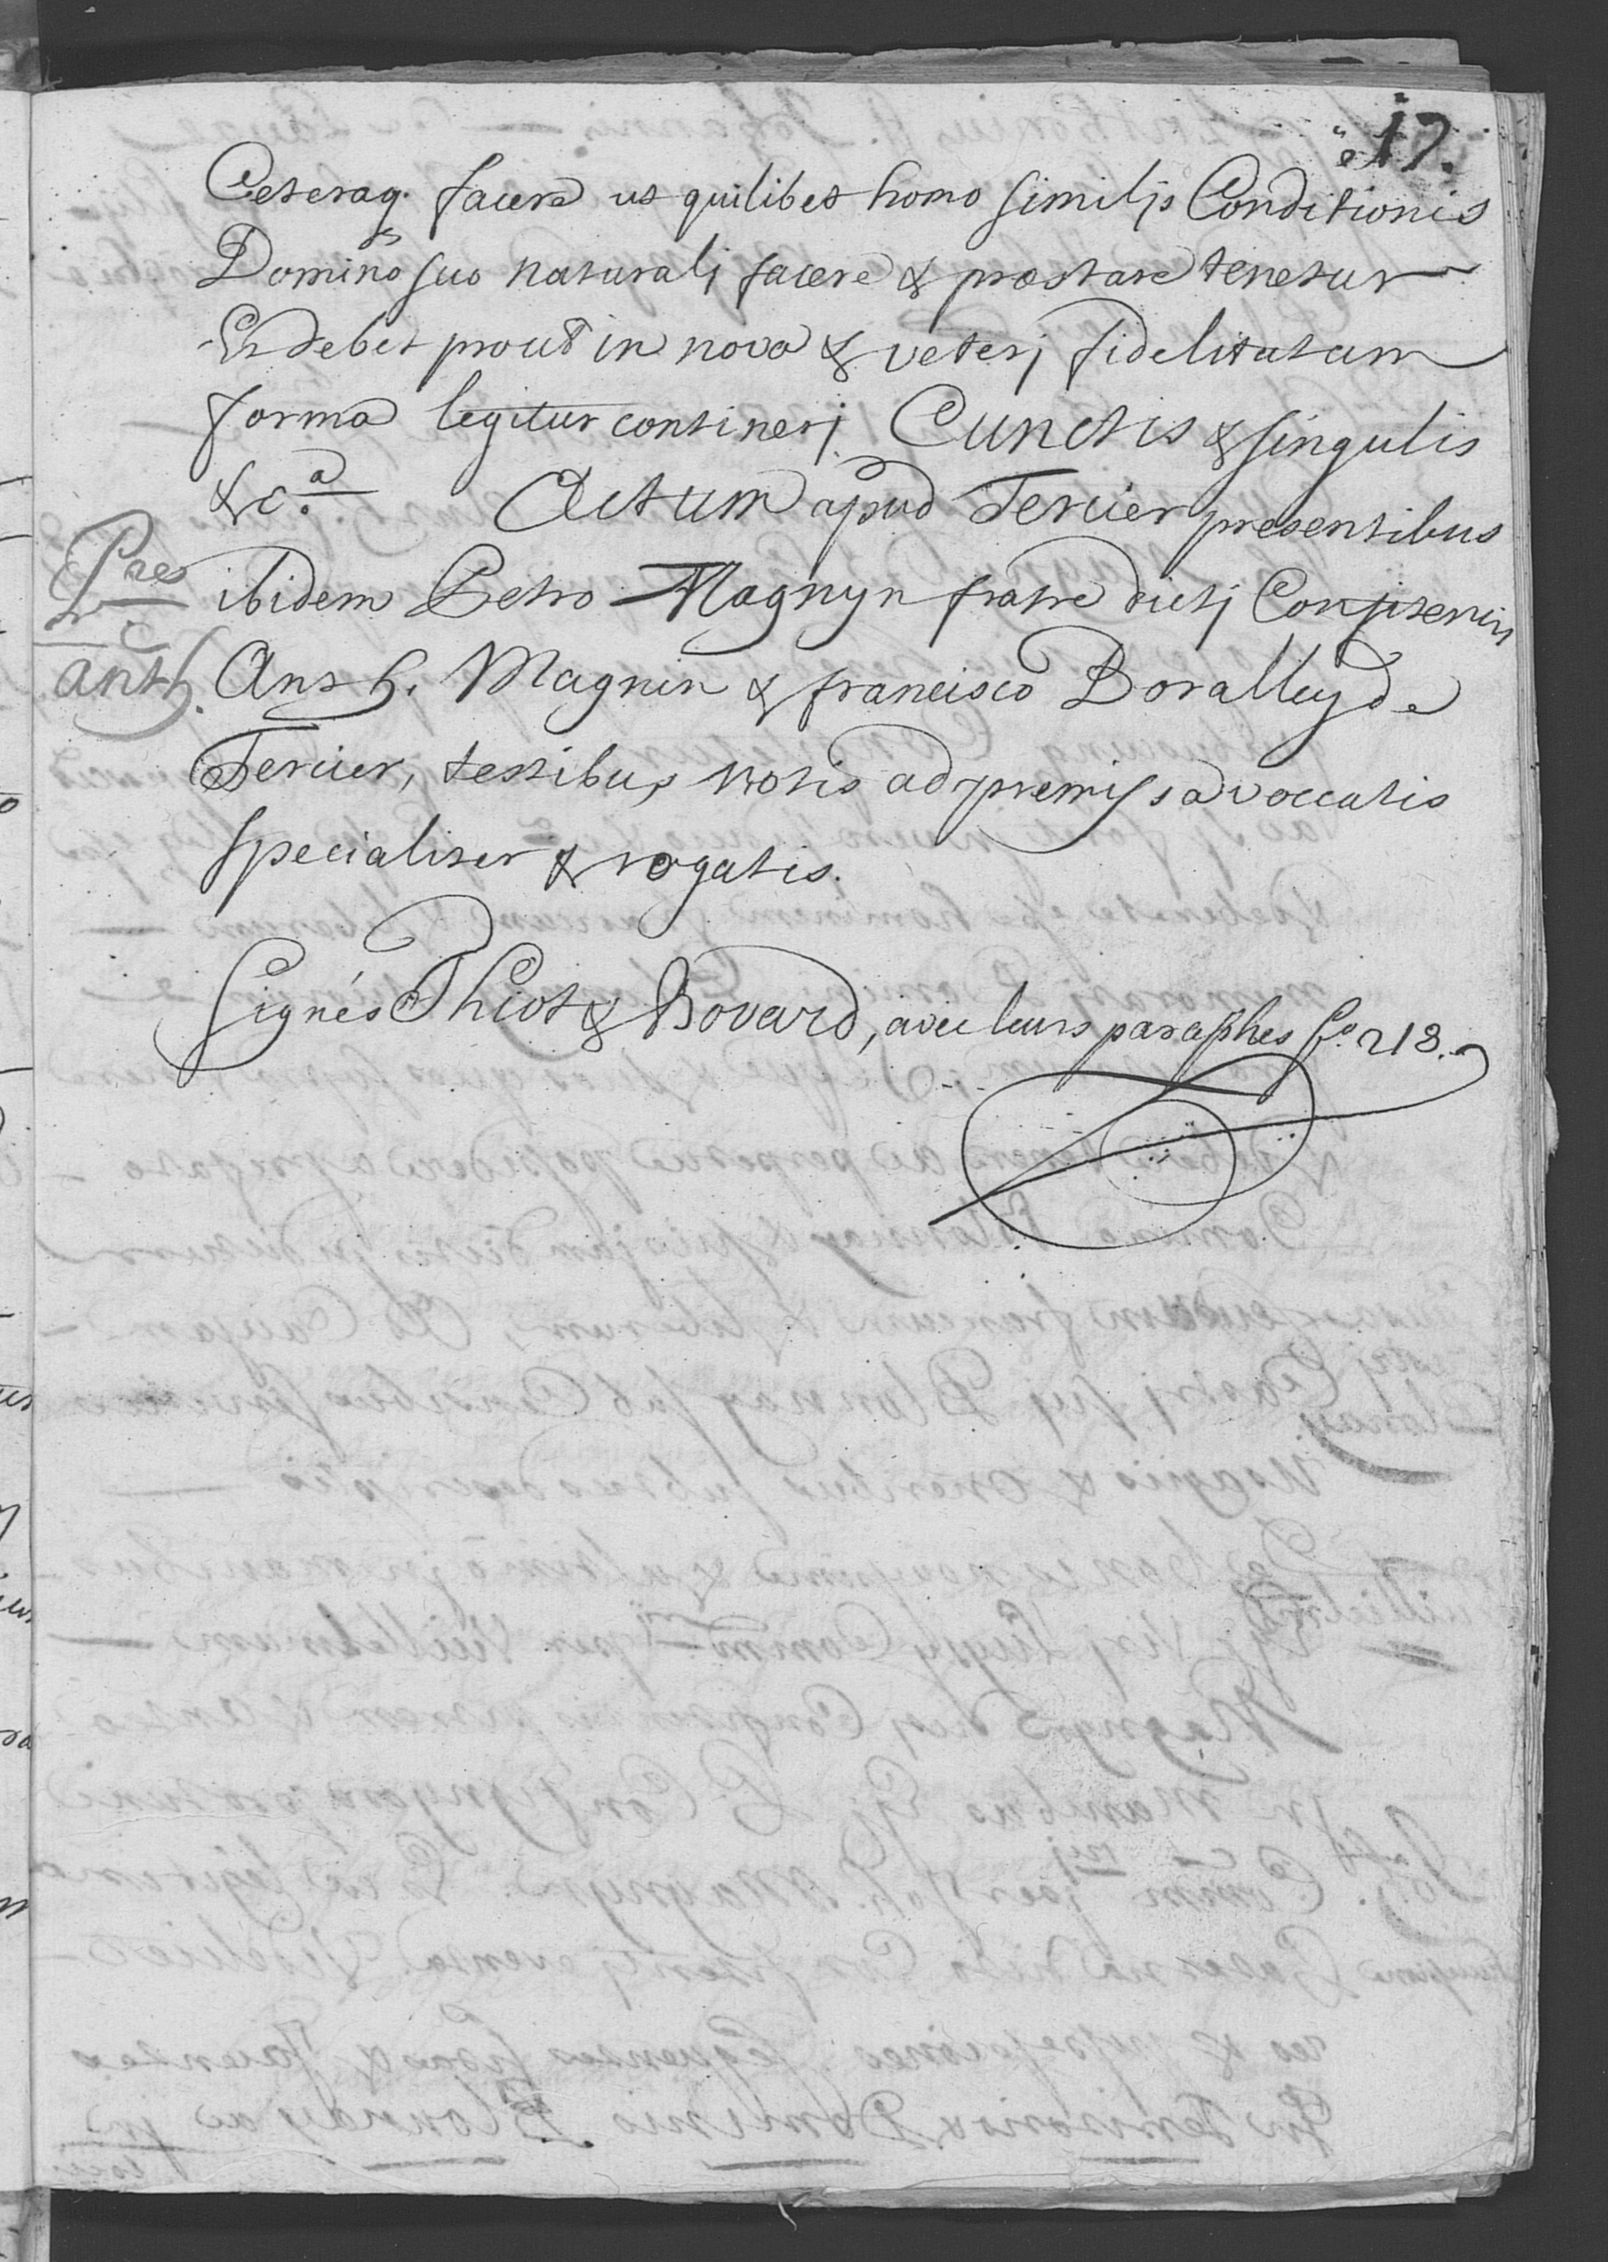 17.
Ceteraq. facere ut quilibet homo similis Conditionis
Domino suo naturalj facere & praestare tenetur
Et debet prout in nova & veterj fidelitatum
forma legitur continerj Cunctis & singulis
&c.a Actum apud Tercier presentibus
ibidem Petro Magnyn fratre dictj Confitentis
Anth. Magnin & francisco Boralley de
Tercier, testibus notis ad premissa voccatis
specialiter & rogatis.
anth.
Signés Thiot & Bovard, avec leurs paraphes fo. 218.